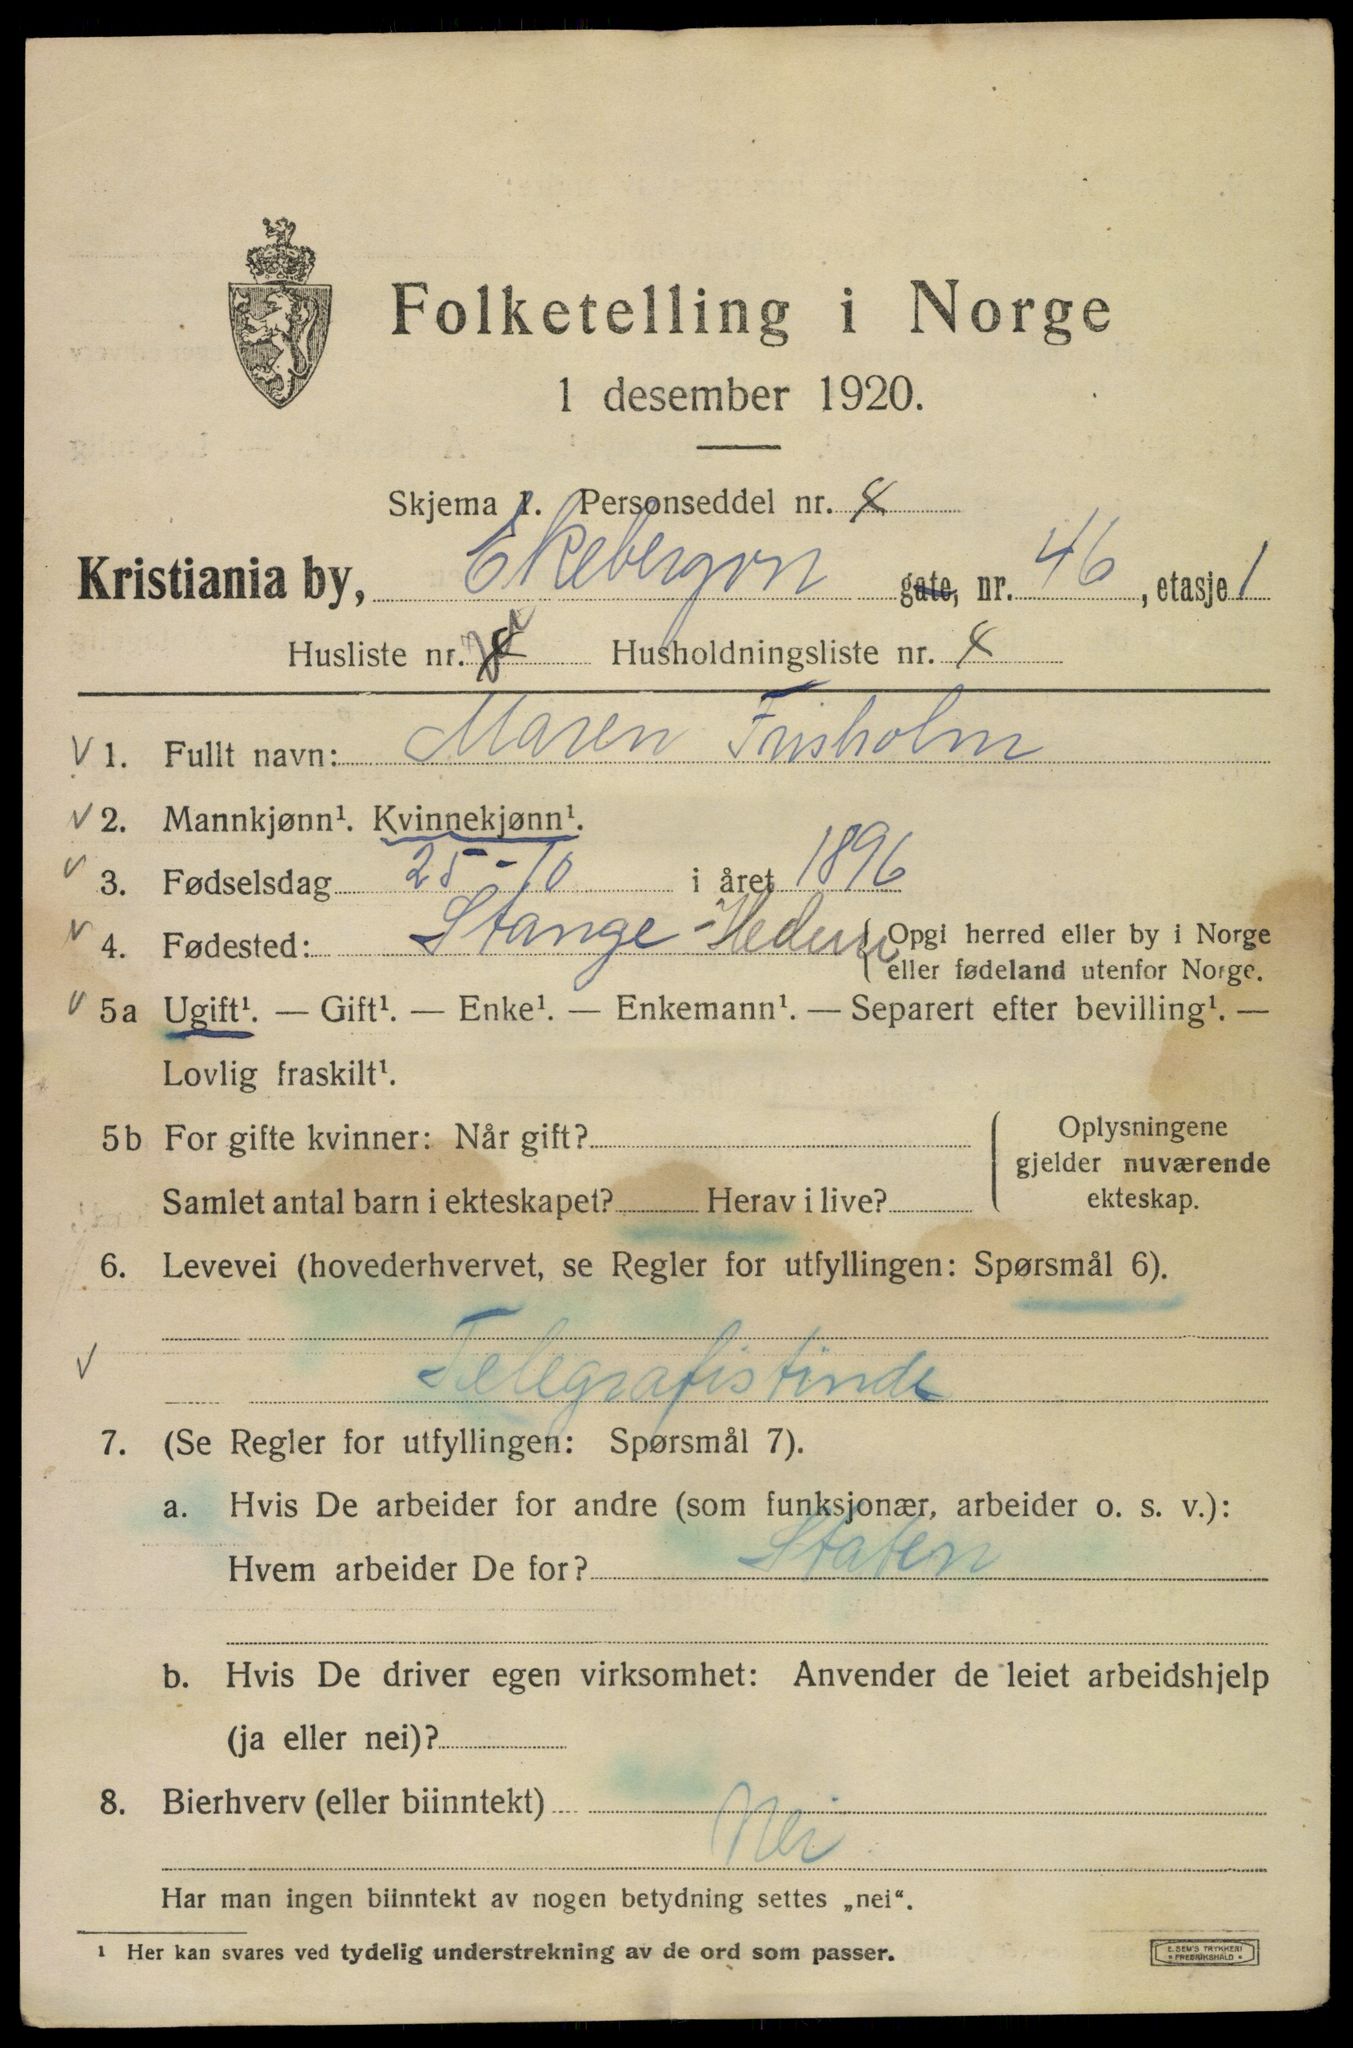 Folketelling i Norge
1 desember 1920.
Skjema 1. Personseddel nr.
Kristiania by, Ekebergvn gate, nr. 46, etasje 1
Husliste nr. Husholdningsliste nr.
1. Fullt navn: Maren Frisholm
2. Mannkjønn¹. Kvinnekjønn¹.
3. Fødselsdag 25-10 i året 1896
4. Fødested: Stange - Hedm {Opgi herred eller by i Norge
eller fødeland utenfor Norge.
5a Ugift¹. — Gift¹. — Enke¹. — Enkemann¹. — Separert efter bevilling¹. —
Lovlig fraskilt¹.
5b For gifte kvinner: Når gift?
Samlet antal barn i ekteskapet? Herav i live?
Oplysningene
gjelder nuværende
ekteskap.
6. Levevei (hovederhvervet, se Regler for utfyllingen: Spørsmål 6).
Telegrafistinde
7. (Se Regler for utfyllingen: Spørsmål 7).
a. Hvis De arbeider for andre (som funksjonær, arbeider o. s. v.):
Hvem arbeider De for? Staten
b. Hvis De driver egen virksomhet: Anvender de leiet arbeidshjelp
(ja eller nei)?
8. Bierhverv (eller biinntekt)
Nei
Har man ingen biinntekt av nogen betydning settes „nei“.
¹ Her kan svares ved tydelig understrekning av de ord som passer.
E. SEM'S TRYKKERI
FREDRIKSHALD